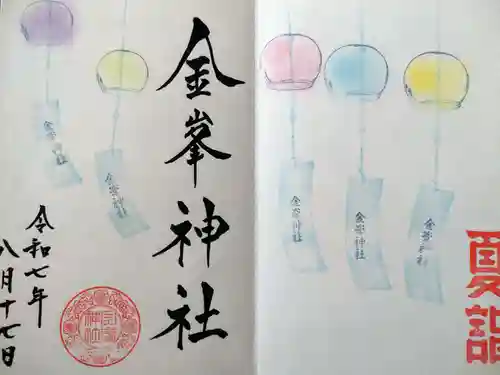 夏詣
金峯神社
金峯神社
金峯神社
金峯神社
令和七年
八月十七日
金峯神社
金峯神社